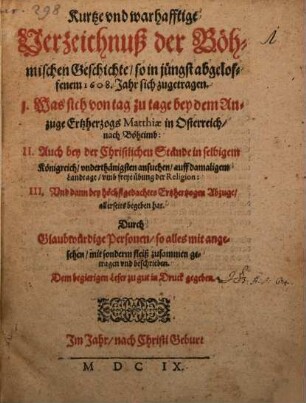 ur. 298
Kurtze vnd warhafftige
Verzeichnuß der Böh-
mischen Geschichte/ so in jüngst abgelof-
fenem 1608. Jahr sich zugetragen.
I. Was sich von tag zu tage bey dem An-
zuge Ertzherzogs Matthiæ in Osterreich/
nach Böheimb:
II. Auch bey der Christlichen Stände in selbigem
Königreich/ vnderthänigsten ansuchen/ auff damaligem
Landtage/ vmb freye übung der Religion:
III. Vnd dann bey höchstgedachtes Ertzherzogen Abzuge/
allerseits begeben hat.
Durch
Glaubwürdige Personen/ so alles mit ange-
sehen/ mit sonderm fleiß zusamen ge-
tragen vnd beschrieben.
Dem begierigen Leser zu gut in Druck gegeben.
Im Jahr/ nach Christi Geburt
M D C IX.